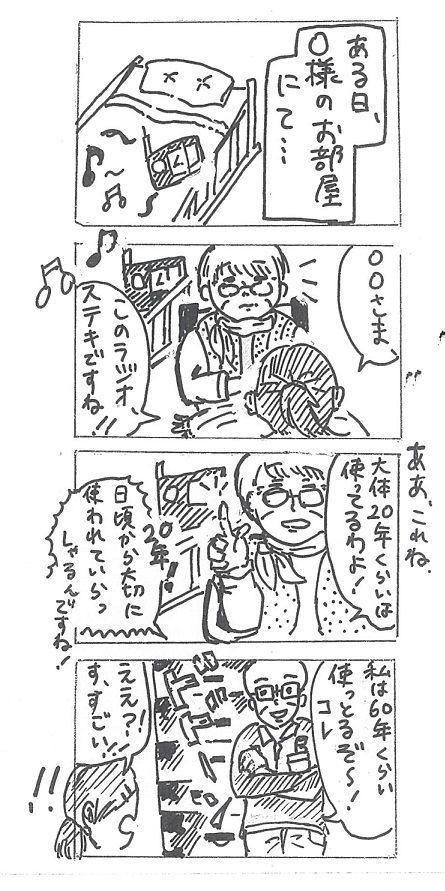 ある日、
○様のお部屋
にて…
○○さま
このラジオ
ステキですね!!
ああ、これね.
大体20年くらいは
使ってるわよ!
20年!
日頃から大切に
使われていらっ
しゃるんですね!
私は60年くらい
使っとるぞ〜!
コレ
ええ?!
す、すごい!!
!!